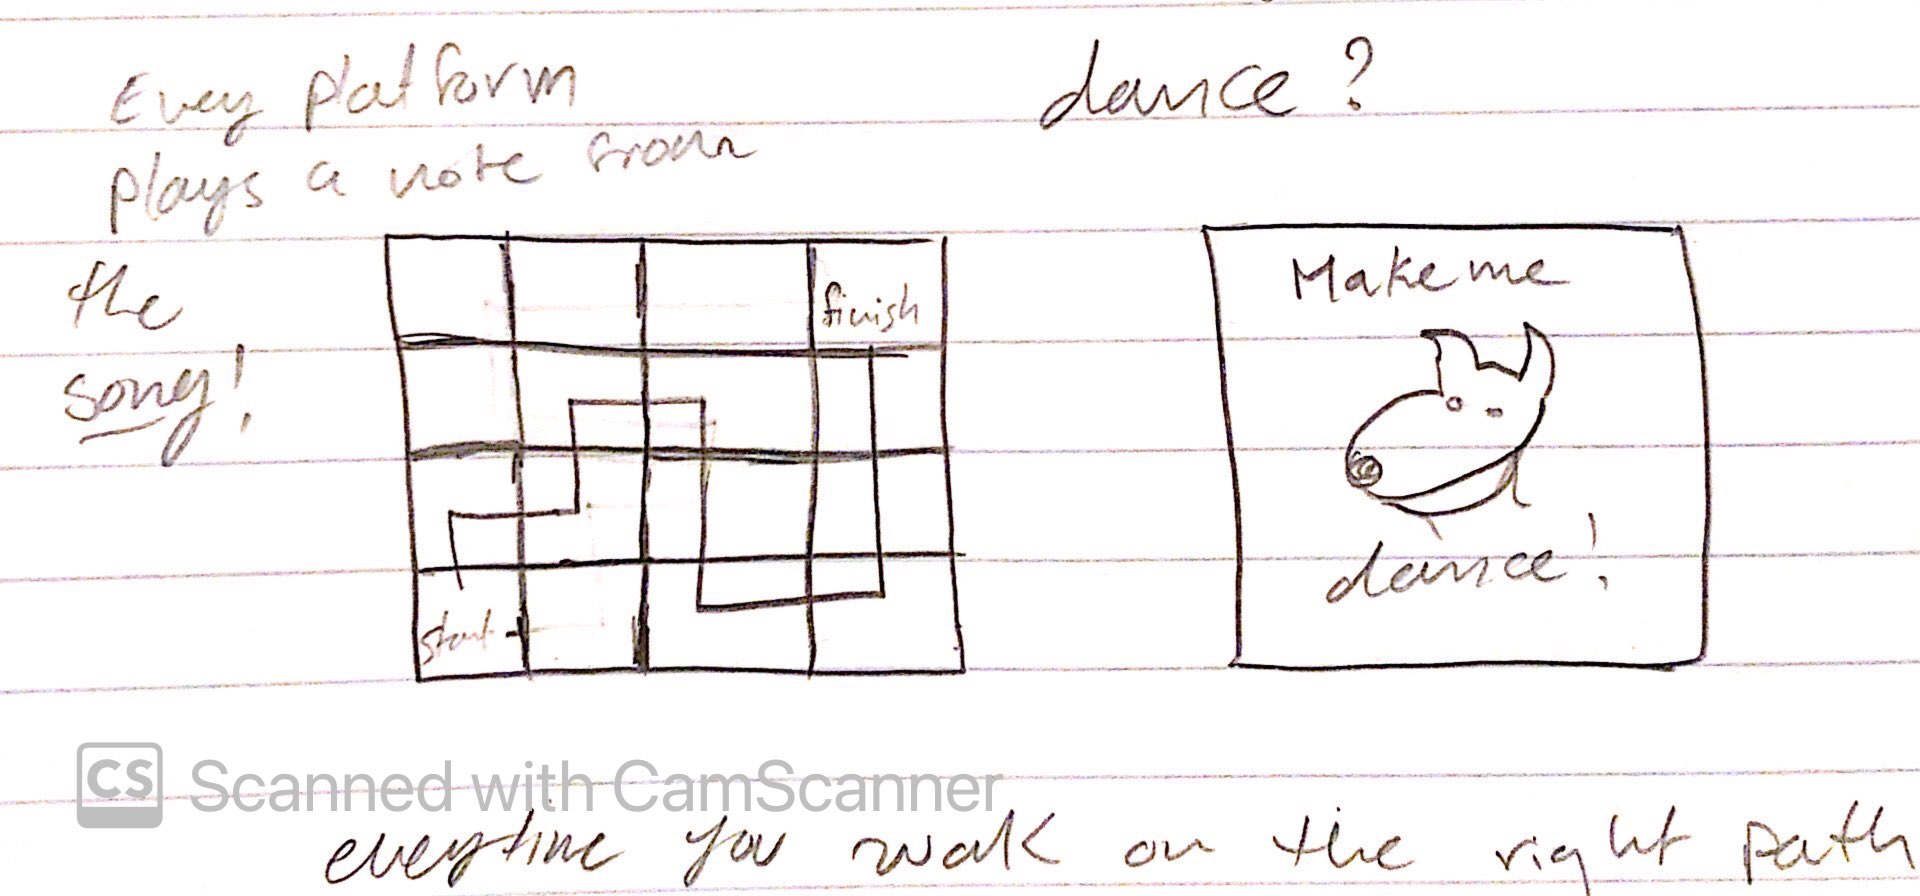 Every platform
plays a note from
the
song!
dance?
finish
start
Make me
dance!
CS Scanned with CamScanner
everytime you walk on the right path